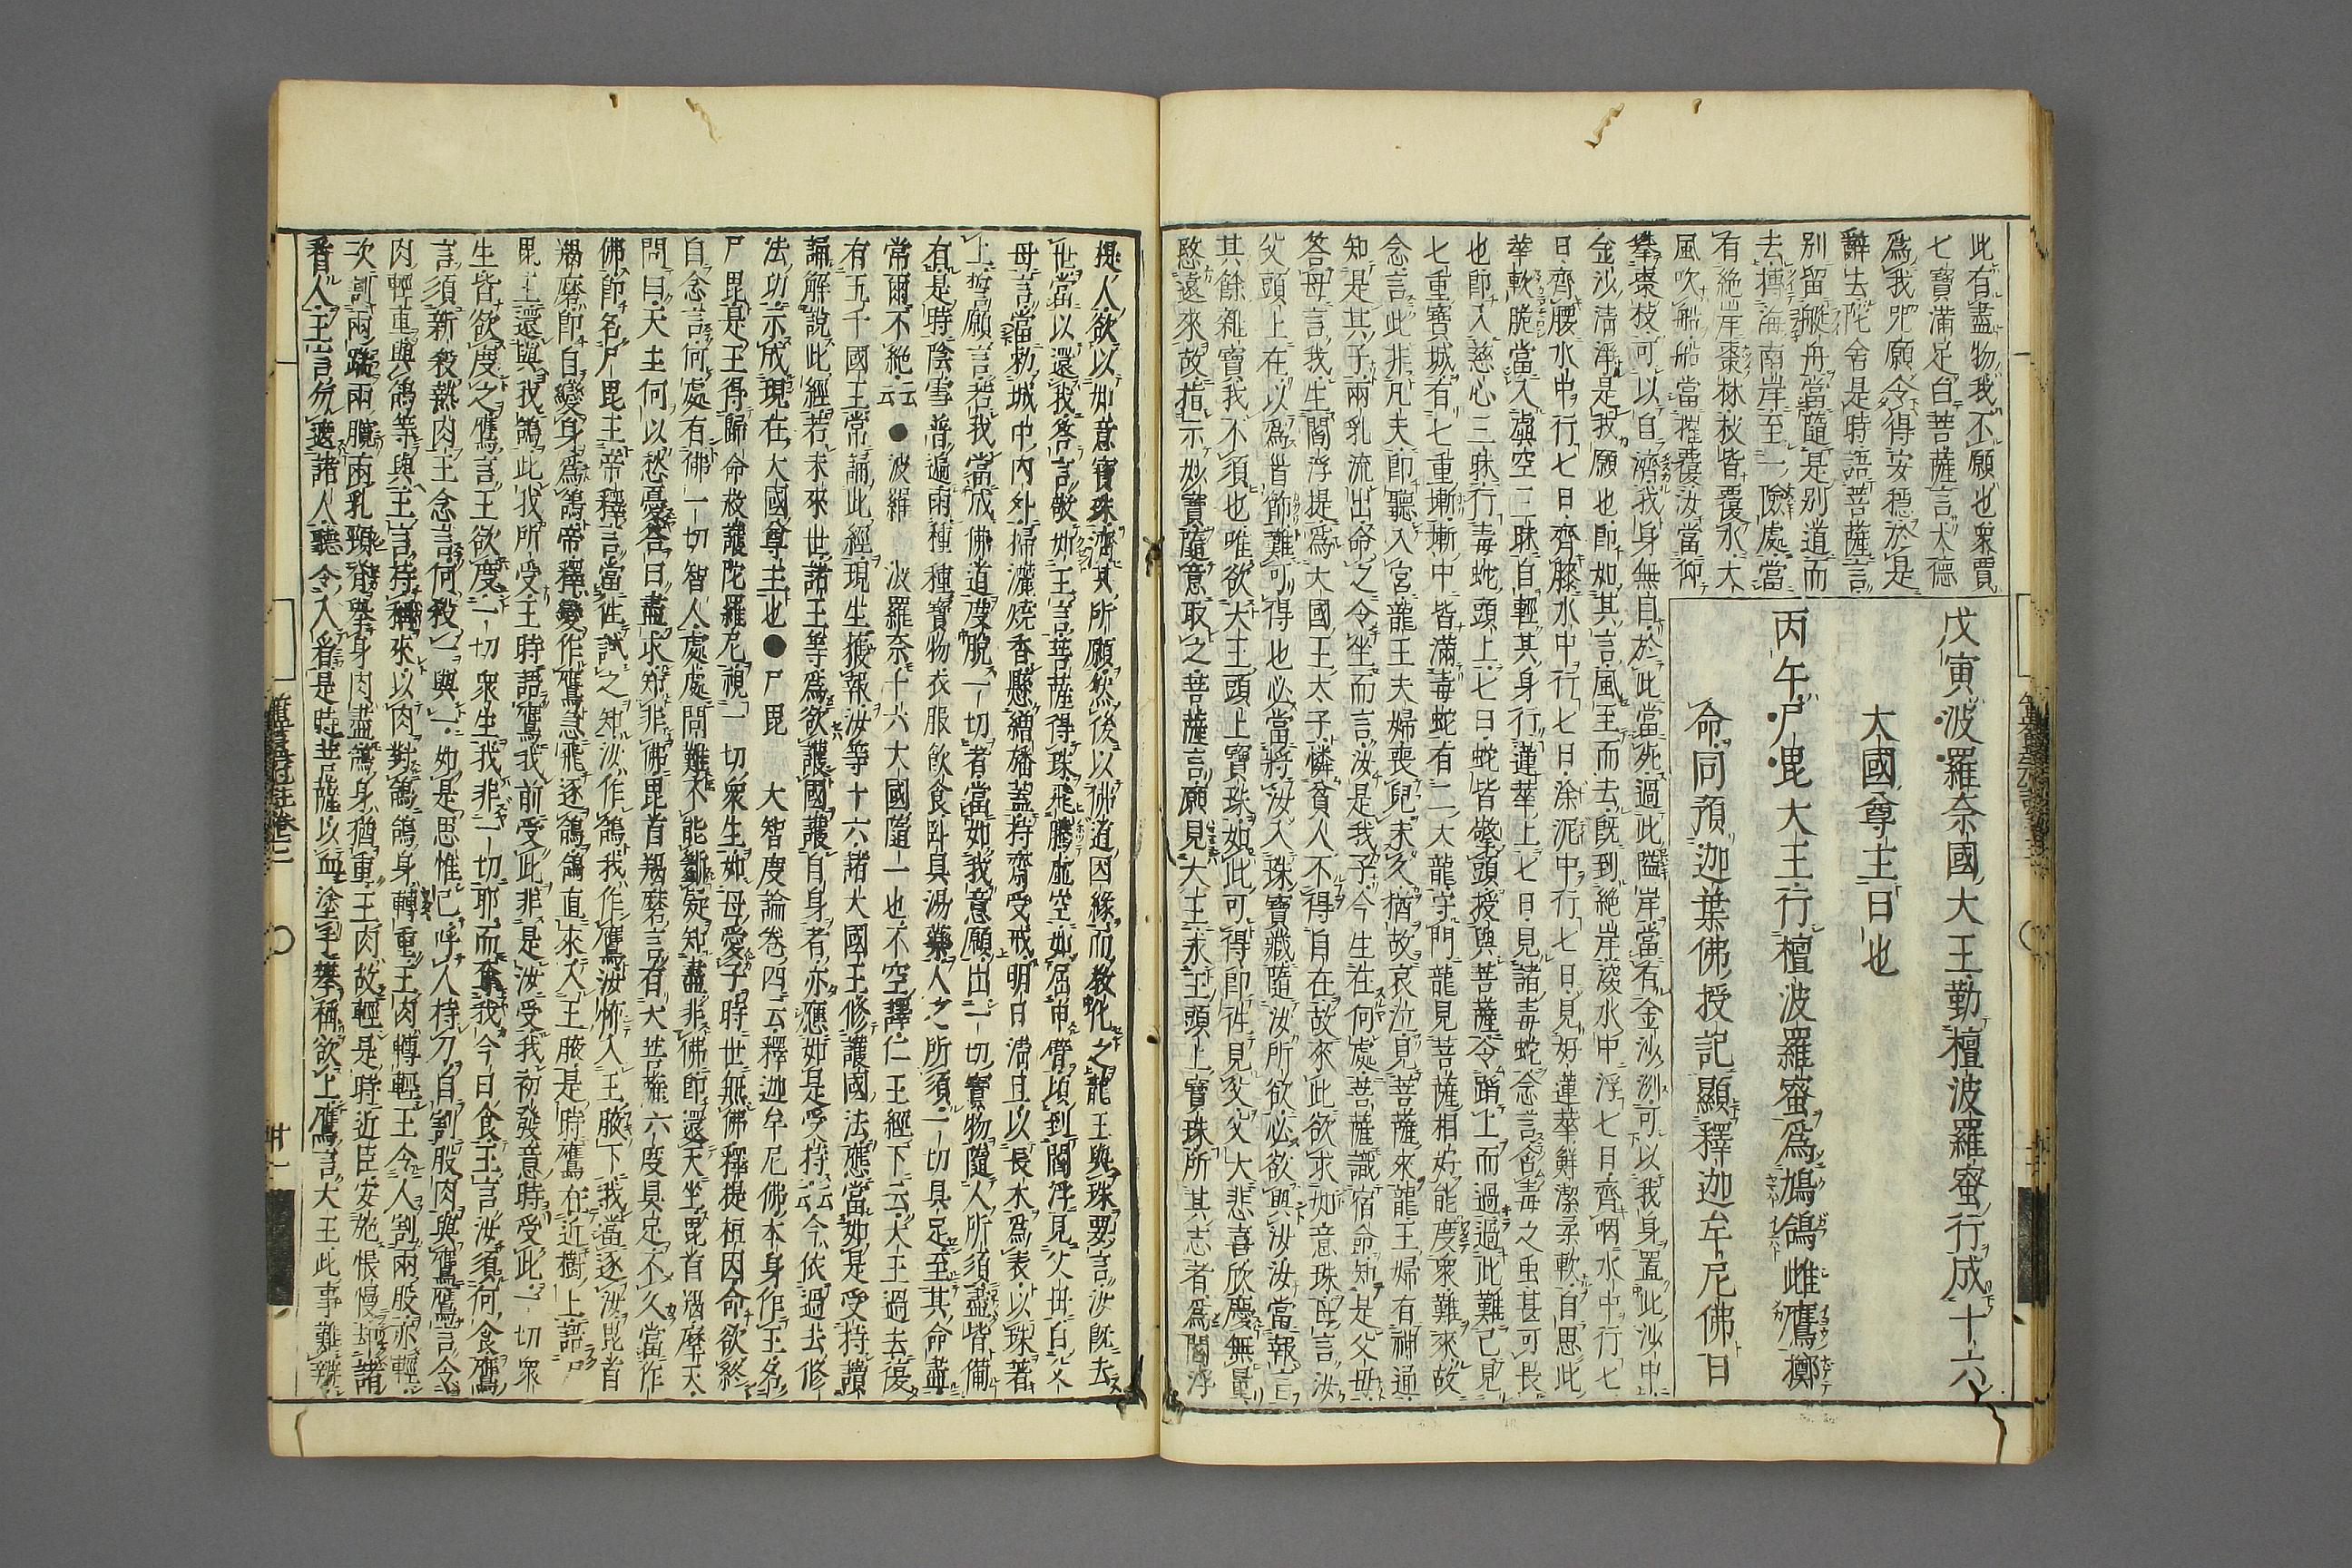 此有盡物我不願也衆賈
七寶滿足白菩薩言大德
爲我咒願令得安穩於是
辭去陀舍是時語菩薩言
別留艇舟當隨是別道而
去搏海南岸至一險處當
有絶岸棗林枝皆覆水大
風吹船船當摧覆汝當仰
戊寅波羅奈國大王勤檀波羅蜜行成十六
大國尊主日也
丙午尸毘大王行檀波羅蜜爲鳩鴿雌鷹擲
命同預迦葉佛授記顯釋迦牟尼佛日
攀棗枝可以自濟我身無自於此當死過此隘岸當有金沙洲可以我身置此沙中
金沙清淨是我願也卽如其言風至而去旣到絶岸渧水中浮七日齊咽水中行七
日齊腰水中行七日齊膝水中行七日涂泥中行七日見好蓮華鮮潔柔軟自思此
華軟脆當入虛空三昧自輕其身行蓮華上七日見諸毒蛇念言含毒之虫甚可畏
也卽入慈心三昧行毒蛇頭上七日蛇皆擎頭授與菩薩令蹈上而過過此難已見
七重寶城有七重塹塹中皆滿毒蛇有二大龍守門龍見菩薩相好能度衆難來故
念言此非凡夫卽聽入宮龍王夫婦喪兒未久猶故哀泣見菩薩來龍王婦有神通
知是其子兩乳流出命之令坐而言汝是我子今生在何處菩薩識宿命知是父母
答母言我生閻浮提爲大國王太子憐貧人不得自在故來此欲求如意珠母言汝
父頭上在以爲首飾難可得也必當將汝入珠寶藏隨汝所欲必欲與汝汝當報言
其餘雜寶我不須也唯欲大王頭上寶珠如此可得卽徃見父父大悲喜欣慶無量
愍遠來故指示妙寶隨意取之菩薩言願見大王求王頭上寶珠所其志者爲閻浮
提人欲以如意寶珠濟其所願然後以佛道因緣而教化之龍王與珠要言汝旣去
世當以還我答言敬如王言菩薩得珠飛騰虛空如屈申臂頃到閻浮見父母白父
母言當勅城中內外掃灑燒香懸繒旛蓋持齋受戒明日淸旦以長木爲表以珠著
上誓願言若我當成佛道度脫一切者當如我意願出一切寶物隨人所須盡皆備
有是時陰雪普遍雨種種寶物衣服飮食臥具湯藥人之所須一切具足至其命盡
常爾不絶云云●波羅 波羅奈十六大國隨一也不空譯仁王經下云大王過去復
有五千國王常誦此經現生獲報汝等十六諸大國王修護國法應當如是受持讀
誦解說此經若未來世諸王等爲欲護國護自身者亦應如是受持云云今依過去修
法功示成現在大國尊主也●尸毘 大智度論卷四云釋迦牟尼佛本身作王名
尸毘是王得歸命救護陀羅尼視一切衆生如母愛子時世無佛釋提桓因命欲終
自念言何處有佛一切智人處處問難不能斷疑知盡非佛卽還天坐毘首羯摩天
問曰天主何以愁憂答曰盡求知非佛毘首羯磨言有大菩薩六度具足不久當作
佛卽名尸毘王帝釋言當徃試之知汝作鴿我作鷹汝怖入王腋下我當逐汝毘首
羯磨卽自變身爲鴿帝釋變作鷹急飛逐鴿鴿直來入王腋是時鷹在近樹上語尸
毘王還與我鴿此我所受王時語鷹我前受此非是汝受我初發意時受此一切衆
生皆欲度之鷹言王欲度一切衆生我非一切耶而奪我今日食王言汝須何食鷹
言須新殺熱肉王念言何殺一與一如是思惟已呼人持刀自割股肉與鷹鷹言令
肉輕重與鴿等與王言持稱來以肉對鴿鴿身轉重王肉轉輕王令人割兩股亦輕
次割兩𨄔兩臗兩乳頸脊擧身肉盡鴿身猶重王肉故輕是時近臣安施帳幔却諸
看人王言勿遮諸人聽令入看是時菩薩以血塗手攀稱欲上鷹言大王此事難辨